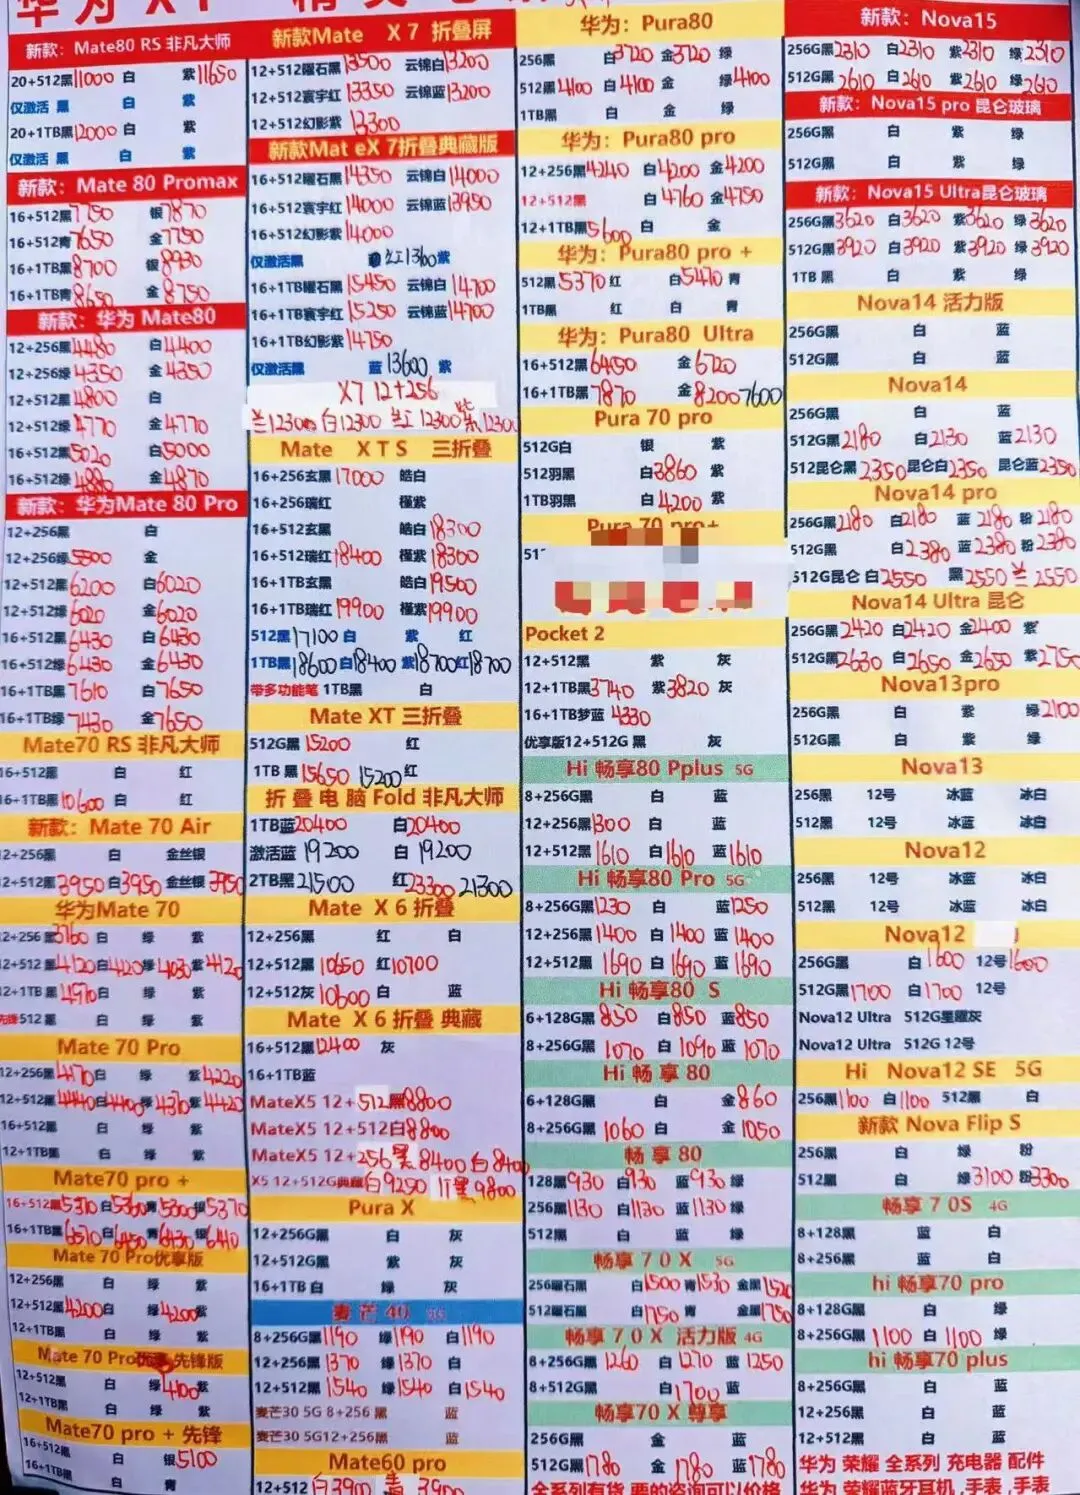 新款：Mate80 RS 非凡大师
20+512黑11000 白 紫11650
仅激活 黑 白 紫
20+1TB黑12000 白 紫
仅激活 黑 白 紫
新款：Mate 80 Promax
16+512黑7750 银7870
16+512青7650 金7750
16+1TB黑8700 银8930
16+1TB青8650 金8750
新款：华为 Mate80
12+256黑4480 白4400
12+256绿4350 金4350
12+512黑4800 白
12+512绿4770 金4770
16+512黑5020 白5000
16+512绿4880 金4870
新款：华为Mate 80 Pro
12+256黑 白
12+256绿5500 金
12+512黑6200 白6020
12+512绿6020 金6020
16+512黑6430 白6430
16+512绿6430 金6430
16+1TB黑7610 白7650
16+1TB绿7430 金7650
Mate70 RS 非凡大师
16+512黑 白 红
16+1TB黑10600 白 红
新款：Mate 70 Air
12+256黑 白 金丝银
12+512黑3950 白3950 金丝银3950
华为Mate 70
12+256黑3760 白 绿 紫
12+512黑4120 白4120 绿4030 紫4120
12+1TB黑4570 白 绿 紫
先锋512黑 白 绿 紫
Mate 70 Pro
12+256黑4170 白 绿 紫4220
12+512黑4440 白4400 绿4370 紫4420
16+512黑 白 绿 紫
12+1TB黑 白 绿 紫
Mate70 pro +
16+512黑5370 白5360 青5300 银5370
16+1TB黑6570 白6450 青6430 银6410
Mate 70 Pro优享版
12+256黑 白 绿 紫
12+512黑4200 白 绿4200 紫
12+1TB黑 白 绿 紫
Mate 70 Pro 先锋版
12+512黑 白 绿4100 紫
12+1TB黑 白 绿 紫
Mate70 pro + 先锋
16+512黑 白 银5100
16+1TB黑 白 青
新款Mate X 7 折叠屏
12+512曜石黑13500 云锦白13200
12+512寰宇红13350 云锦蓝13200
12+512幻影紫13300
新款Mat eX 7折叠典藏版
16+512曜石黑14350 云锦白14000
16+512寰宇红14000 云锦蓝13950
16+512幻影紫14000
仅激活黑 红13600 紫
16+1TB曜石黑15450 云锦白14700
16+1TB寰宇红15250 云锦蓝14700
16+1TB幻影紫14750
仅激活黑 蓝13600 紫
X7 12+256
兰12300 白12300 红12300 紫12300
Mate X T S 三折叠
16+256玄黑17000 皓白
16+256瑞红 槿紫
16+512玄黑 皓白18300
16+512瑞红18400 槿紫18300
16+1TB玄黑 皓白19500
16+1TB瑞红19900 槿紫19900
512黑17100 白 紫 红
1TB黑18600 白18400 紫18700 红18700
带多功能笔 1TB黑 白
Mate XT 三折叠
512G黑15200 红
1TB 黑15650 15200 红
折 叠 电 脑 Fold 非凡大师
1TB蓝20400 白20400
激活蓝19200 白19200
2TB黑21500 红23300 21300
Mate X 6 折叠
12+256黑 红 白
12+512黑10650 红10700
12+512灰10600 白 蓝
Mate X 6 折叠 典藏
16+512黑12400 灰
16+1TB蓝
MateX5 12+512黑8800
MateX5 12+512白8800
MateX5 12+256黑8400 白8400
X5 12+512G典藏白9250 1T黑9800
Pura X
12+256G黑 白 灰
12+512G黑 紫 灰
16+1TB 白 绿 灰
麦芒 40 5G
8+256G黑1190 绿1190 白1190
12+256黑1370 绿1370 白
12+512黑1540 绿1540 白1540
麦芒30 5G 8+256 黑 蓝
麦芒30 5G12+256黑 蓝
Mate60 pro
12+512 白3900 青3900
华为：Pura80
256黑 白3720 金3720 绿
512黑4100 白4100 金 绿4100
1TB黑 白 金 绿
华为：Pura80 pro
12+256黑4240 白4200 金4200
12+512黑 白4760 金4750
12+1TB黑5600 白 金
华为：Pura80 pro +
512黑5370 红 白5410 青
1TB黑 红 白 青
华为：Pura80 Ultra
16+512黑6450 金6720
16+1TB黑7870 金8200 7600
Pura 70 pro
512G白 银 紫
512羽黑 白3860 紫
1TB羽黑 白4200 紫
Pura 70 pro+
51
Pocket 2
12+512黑 紫 灰
12+1TB黑3740 紫3820 灰
16+1TB梦蓝4330
优享版12+512G 黑 灰
Hi 畅享80 Pplus 5G
8+256G黑 白 蓝
12+256黑1300 白 蓝
12+512黑1610 白1610 蓝1610
Hi 畅享80 Pro 5G
8+256G黑1230 白 蓝1250
12+256黑1400 白1400 蓝1400
12+512黑1690 白1690 蓝1690
Hi 畅享80 S
6+128G黑850 白850 蓝850
8+256G黑1070 白1090 蓝1070
Hi 畅 享 80
6+128G黑 白 金860
8+256G黑1060 白 金1050
畅 享 80
128黑930 白930 蓝930 绿
256黑1130 白1130 蓝1130 绿
512黑 白 蓝 绿
畅 享 7 0 X 5G
256曜石黑 白1500 青1530 金黑1520
512曜石黑 白1750 青 金黑1750
畅享 7 0 X 活力版 4G
8+256G黑1260 白1270 蓝1250
8+512G黑 白1700 蓝
畅享70 X 尊享
256G黑 金 蓝
512G黑1780 金1780 蓝1780
全系列有货 要的咨询可以价格
新款：Nova15
256G黑2310 白2310 紫2310 绿2310
512G黑2610 白2610 紫2610 绿2610
新款：Nova15 pro 昆仑玻璃
256G黑 白 紫 绿
512G黑 白 紫 绿
新款：Nova15 Ultra昆仑玻璃
256G黑3620 白3620 紫3620 绿3620
512G黑3920 白3920 紫3920 绿3920
1TB 黑 白 紫 绿
Nova14 活力版
256G黑 白 蓝
512G黑 白 蓝
Nova14
256G黑 白 蓝
512G黑2180 白2130 蓝2130
512昆仑黑2350 昆仑白2350 昆仑蓝2350
Nova14 pro
256G黑2180 白2180 蓝2180 粉2180
512G黑 白2380 蓝2380 粉2380
512G昆仑 白2550 黑2550 兰2550
Nova14 Ultra 昆仑
256G黑2420 白2420 金2400 紫
512G黑2630 白2650 金2650 紫2750
Nova13pro
256G黑 白 紫 绿2100
512G黑 白 紫 绿
Nova13
256黑 12号 冰蓝 冰白
512黑 12号 冰蓝 冰白
Nova12
256黑 12号 冰蓝 冰白
512黑 12号 冰蓝 冰白
Nova12
256G黑 白1600 12号1600
512G黑1700 白1700 12号
Nova12 Ultra 512G星耀灰
Nova12 Ultra 512G 12号
Hi Nova12 SE 5G
256黑1100 白1100 512黑 白
新款 Nova Flip S
256黑 白 绿 粉
512黑 白 绿3100 粉3300
畅享 7 0S 4G
8+128黑 蓝 白
8+256黑 蓝 白
hi 畅享70 pro
8+128G黑 白 绿
8+256G黑1100 白1100 绿
hi 畅享70 plus
8+256G黑 白 蓝
12+256黑 白 蓝
12+512黑 白 蓝
华为 荣耀 全系列 充电器 配件
华为 荣耀蓝牙耳机 ,手表 ,手表